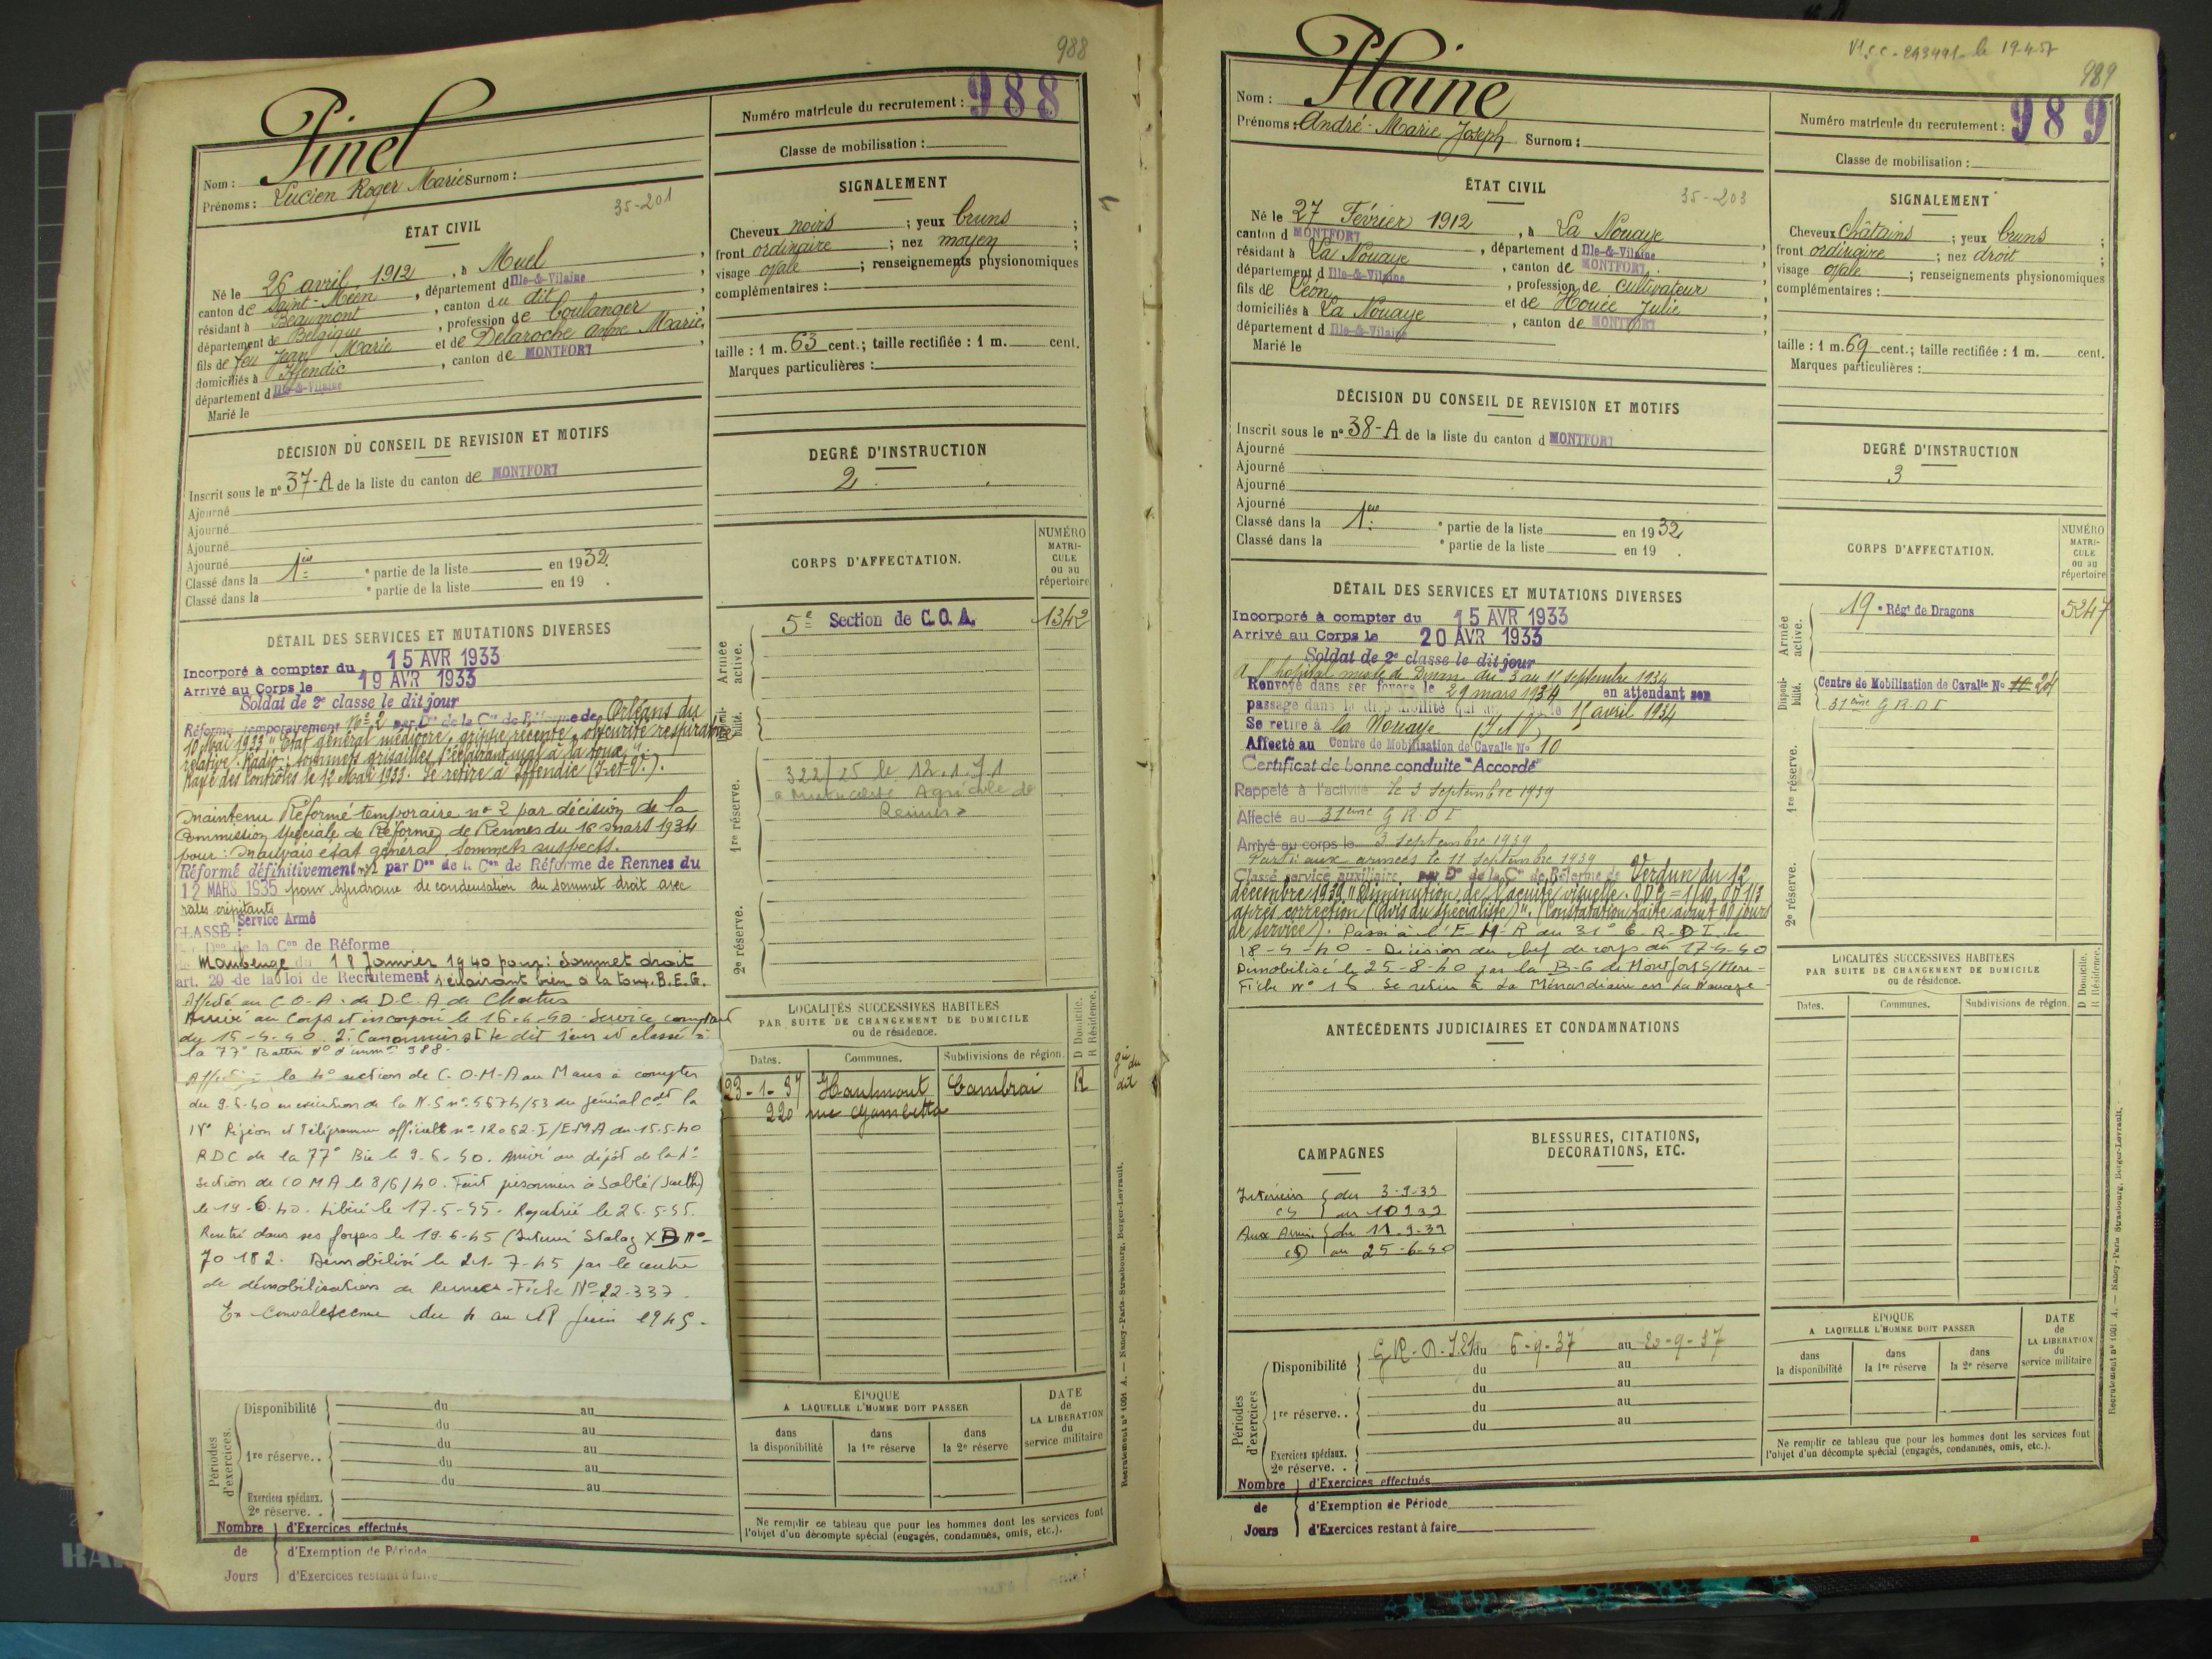 988
Pinel
Nom :
Prénoms : Lucien Roger Marie Surnom :
Numéro matricule du recrutement : 988
Classe de mobilisation :
35-201
ÉTAT CIVIL
Né le 26 avril 1912, à Muel
canton de Saint-Méen, département d Ille-&-Vilaine,
résidant à Beaumont, canton du dit,
département de Belgique, profession de boulanger,
fils de feu Jean Marie et de Delaroche Anne Marie,
domiciliés à Iffendic, canton de MONTFORT,
département d Ille-&-Vilaine
Marié le
SIGNALEMENT
Cheveux noirs ; yeux bruns ;
front ordinaire ; nez moyen ;
visage ovale ; renseignements physionomiques
complémentaires :
taille : 1 m. 63 cent.; taille rectifiée : 1 m. cent.
Marques particulières :
DÉCISION DU CONSEIL DE REVISION ET MOTIFS
Inscrit sous le nº 37-A de la liste du canton de MONTFORT
Ajourné
Ajourné
Ajourné
Ajourné
Classé dans la 1ère e partie de la liste en 1932.
Classé dans la e partie de la liste en 19 .
DEGRÉ D'INSTRUCTION
2
CORPS D'AFFECTATION.
NUMÉRO MATRI-CULE ou au répertoire
Armée active.
5e Section de C.O.A. 1342
Disponi-bilité.
1re réserve.
322/25 le 12.1.71
a Mutualité Agricole de
Rennes
2e réserve.
DÉTAIL DES SERVICES ET MUTATIONS DIVERSES
Incorporé à compter du 15 AVR 1933
Arrivé au Corps le 19 AVR 1933
Soldat de 2e classe le dit jour
Réformé temporairement nº 2 par Don de la Con de Réforme de Orléans du
10 Mai 1933 "Etat général médiocre, grippe récente, obscurité respiratoire
relative. Radio : sommets grisailles s'éclairant mal à la toux."
Rayé des contrôles le 12 Mai 1933. Se retire à Iffendic (I-et-V.).
Maintenu Réformé temporaire nº 2 par décision de la
Commission spéciale de Réforme de Rennes du 16 mars 1934
pour : Mauvais état général, sommets suspects.
Réformé définitivement nº2 par Don de la Con de Réforme de Rennes du
12 MARS 1935 pour syndrome de condensation du sommet droit avec
rales crépitants
Service Armé
CLASSÉ :
Don de la Con de Réforme
de Maubeuge du 18 Janvier 1940 pour : sommet droit
art. 20 de la loi de Recrutement s'éclairant bien à la toux. B.E.G.
Affecté au C.O.A. de D.C.A de Chartres
Arrivé au Corps et incorporé le 16-4-40. Service comptant
du 15-4-40. 2e Canonnier le dit jour et classé à
la 77e Battrie Nº d'imm 988.
Affecté à la 4e section de C.O.M.A au Mans à compter
du 9.6.40 en exécution de la N.S nº 5674/53 du général Cdt la
IVe Région et Télégramme officiel nº 12062-I/EMA du 15.5.40
RDC de la 77e Bie le 9-6-40. Arrivé au dépôt de la 4e
section de COMA le 8/6/40. Fait prisonnier à Sablé (Sarthe)
le 19-6-40. Libéré le 17-5-45. Rapatrié le 26-5-45.
Rentré dans ses foyers le 19-6-45 (Interné Stalag XB Nº
70182. Démobilisé le 21-7-45 par le centre
de démobilisation de Rennes-Fiche Nº 22-337.
En Convalescence du 4 au 18 juin 1945.
LOCALITÉS SUCCESSIVES HABITÉES
PAR SUITE DE CHANGEMENT DE DOMICILE
ou de résidence.
D Domicile. R Résidence.
Dates. Communes. Subdivisions de région.
23-1-37 Hautmont Cambrai R
220 rue Gambetta
Périodes d'exercices.
Disponibilité du au
du au
1re réserve.. du au
du au
du au
Exercices spéciaux.
2e réserve. .
Nombre de Jours
d'Exercices effectués
d'Exemption de Période
d'Exercices restant à faire
ÉPOQUE
A LAQUELLE L'HOMME DOIT PASSER
dans la disponibilité
dans la 1re réserve
dans la 2e réserve
DATE de LA LIBÉRATION du service militaire
Ne remplir ce tableau que pour les hommes dont les services font
l'objet d'un décompte spécial (engagés, condamnés, omis, etc.).
Recrutement nº 1001 A. — Nancy-Paris-Strasbourg, Berger-Levrault.
V1.c.c-243491- le 19-4-57
989
Plaine
Nom :
Prénoms : André-Marie Joseph Surnom :
Numéro matricule du recrutement : 989
Classe de mobilisation :
35-203
ÉTAT CIVIL
Né le 27 Février 1912, à La Nouaye
canton d MONTFORT, département d Ille-&-Vilaine,
résidant à La Nouaye, canton de MONTFORT,
département d Ille-&-Vilaine, profession de cultivateur
fils de Léon et de Houée Julie,
domiciliés à La Nouaye, canton de MONTFORT,
département d Ille-&-Vilaine
Marié le
SIGNALEMENT
Cheveux châtains ; yeux bruns ;
front ordinaire ; nez droit ;
visage ovale ; renseignements physionomiques
complémentaires :
taille : 1 m. 69 cent.; taille rectifiée : 1 m. cent.
Marques particulières :
DÉCISION DU CONSEIL DE REVISION ET MOTIFS
Inscrit sous le nº 38-A de la liste du canton d MONTFORT
Ajourné
Ajourné
Ajourné
Ajourné
Classé dans la 1ère e partie de la liste en 1932.
Classé dans la e partie de la liste en 19 .
DEGRÉ D'INSTRUCTION
3
CORPS D'AFFECTATION.
NUMÉRO MATRI-CULE ou au répertoire
Armée active.
19 e Régt de Dragons 5247
Disponi-bilité.
Centre de Mobilisation de Cavalie Nº 10 204
31ème G R D I
1re réserve.
2e réserve.
DÉTAIL DES SERVICES ET MUTATIONS DIVERSES
Incorporé à compter du 15 AVR 1933
Arrivé au Corps le 20 AVR 1933
Soldat de 2e classe le dit jour
A l'hôpital mixte de Dinan du 3 au 11 septembre 1934
Renvoyé dans ses foyers le 29 mars 1934 en attendant son
passage dans la disponibilité qui au le 15 avril 1934
Se retire à la Nouaye (I&V)
Affecté au Centre de Mobilisation de Cavalie Nº 10
Certificat de bonne conduite "Accordé"
Rappelé à l'activité le 3 septembre 1939
Affecté au 31ème G R-D I
Arrivé au corps le 3 septembre 1939
Parti aux armées le 11 septembre 1939
Classé service auxiliaire par Don de la Con de Réforme de Verdun du 12
décembre 1939 "Diminution de l'acuité visuelle. ODG = 1/10, OD 1/3
après correction (Avis du spécialiste)". (Constatation faite avant 90 jours
de service). Passé à l'E-M-R du 31e G-R-D-I le
18-4-40 - Décision du chef de corps du 17-4-40
Démobilisé le 25-8-40 par la B-G de Montfort s/Meu-
Fiche Nº 16. Se retire à La Ménardiaire en La Nouaye-
LOCALITÉS SUCCESSIVES HABITÉES
PAR SUITE DE CHANGEMENT DE DOMICILE
ou de résidence.
D Domicile. R Résidence.
Dates. Communes. Subdivisions de région.
ANTÉCÉDENTS JUDICIAIRES ET CONDAMNATIONS
CAMPAGNES
Intérieur du 3-9-39
au 10 9 39
Aux Armées du 11-9-39
au 25-6-40
BLESSURES, CITATIONS,
DÉCORATIONS, ETC.
Périodes d'exercices
Disponibilité G.R.D.I.21 du 6-9-37 au 20-9-37
du au
1re réserve.. du au
du au
du au
Exercices spéciaux.
2e réserve. .
Nombre de Jours
d'Exercices effectués
d'Exemption de Période
d'Exercices restant à faire
ÉPOQUE
A LAQUELLE L'HOMME DOIT PASSER
dans la disponibilité
dans la 1re réserve
dans la 2e réserve
DATE de LA LIBÉRATION du service militaire
Ne remplir ce tableau que pour les hommes dont les services font
l'objet d'un décompte spécial (engagés, condamnés, omis, etc.).
Recrutement nº 1001 A. — Nancy-Paris-Strasbourg, Berger-Levrault.